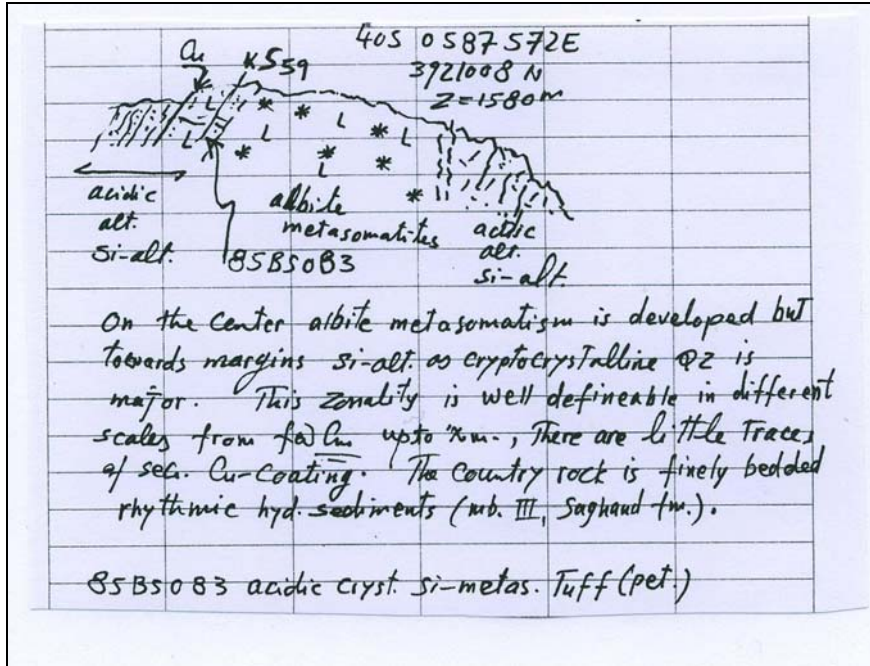 40S 0587572E
3921008 N
Z=1580m
Cu
KS59
L L L L L L
acidic
alt.
Si-alt.
albite
metasomatites
85BS083
acidic
alt.
si-alt.
On the center albite metasomatism is developed but
towards margins si-alt. as cryptocrystalline QZ is
major. This zonality is well defineable in different
scales from few Cm upto Xm., There are little Traces
of sec. Cu-Coating. The country rock is finely bedded
rhythmic hyd. sediments (mb. III, Saghand fm.).
85BS083 acidic cryst. si-metas. Tuff (pet.)